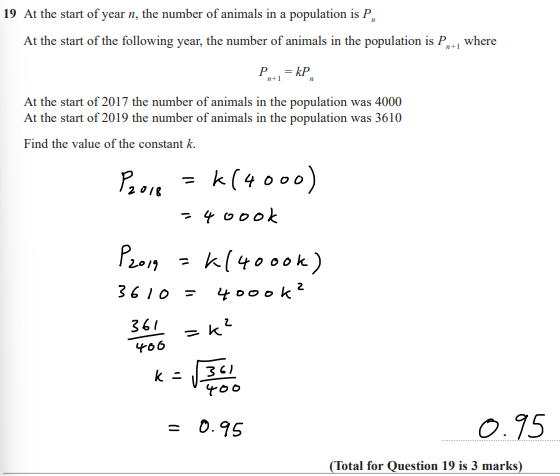 19 At the start of year n, the number of animals in a population is Pₙ
At the start of the following year, the number of animals in the population is Pₙ₊₁ where
Pₙ₊₁ = kPₙ
At the start of 2017 the number of animals in the population was 4000
At the start of 2019 the number of animals in the population was 3610
Find the value of the constant k.
P₂₀₁₈ = k(4000)
= 4000k
P₂₀₁₉ = k(4000k)
3610 = 4000k²
361/400 = k²
k = √(361/400)
= 0.95
0.95
(Total for Question 19 is 3 marks)